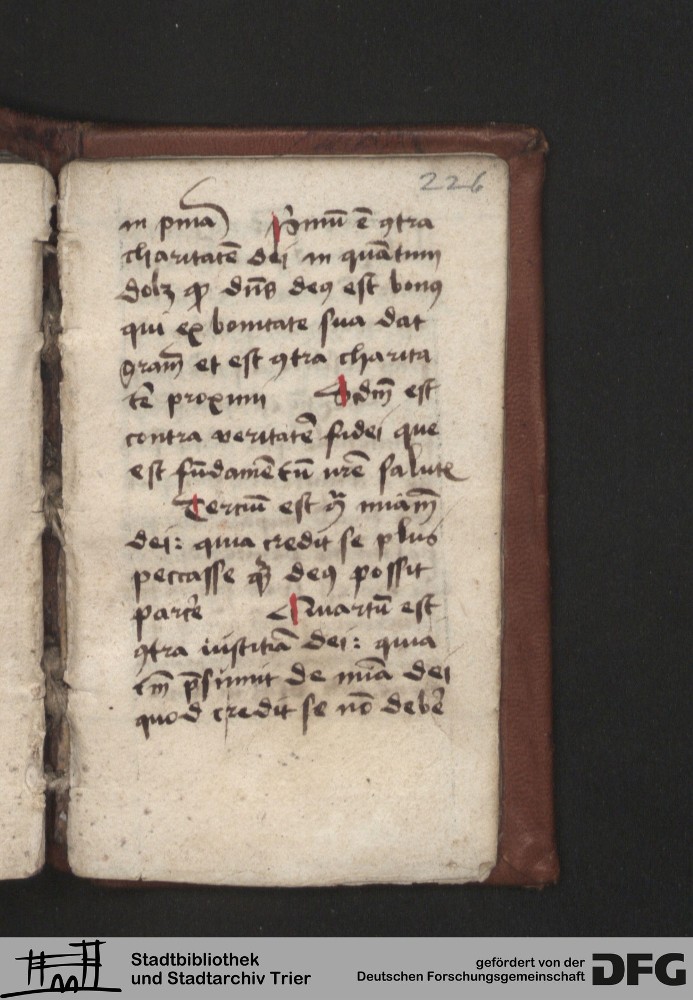 226
in pm̄a P̄mū ē ꝯtra
charitatē dei in quātum
dolꝫ ꝙ dn̄s deꝰ est bonꝰ
qui ex bonitate sua dat
gram̄ et est ꝯtra charita
tē proximi Scdm̄ est
contra veritatē fidei que
est fūdamētū nr̄e salutꝭ
Tercium̄ est ꝯͣ miam̄
dei: quia credit se plus
peccasse qͣ̄ deꝰ possit
parcẽ Quartū est
ꝯtra iusticiā dei: quia
tm̄ p̄sumit de mīa dei
quod credit se nō debẽ
Stadtbibliothek
und Stadtarchiv Trier
gefördert von der
Deutschen Forschungsgemeinschaft
DFG